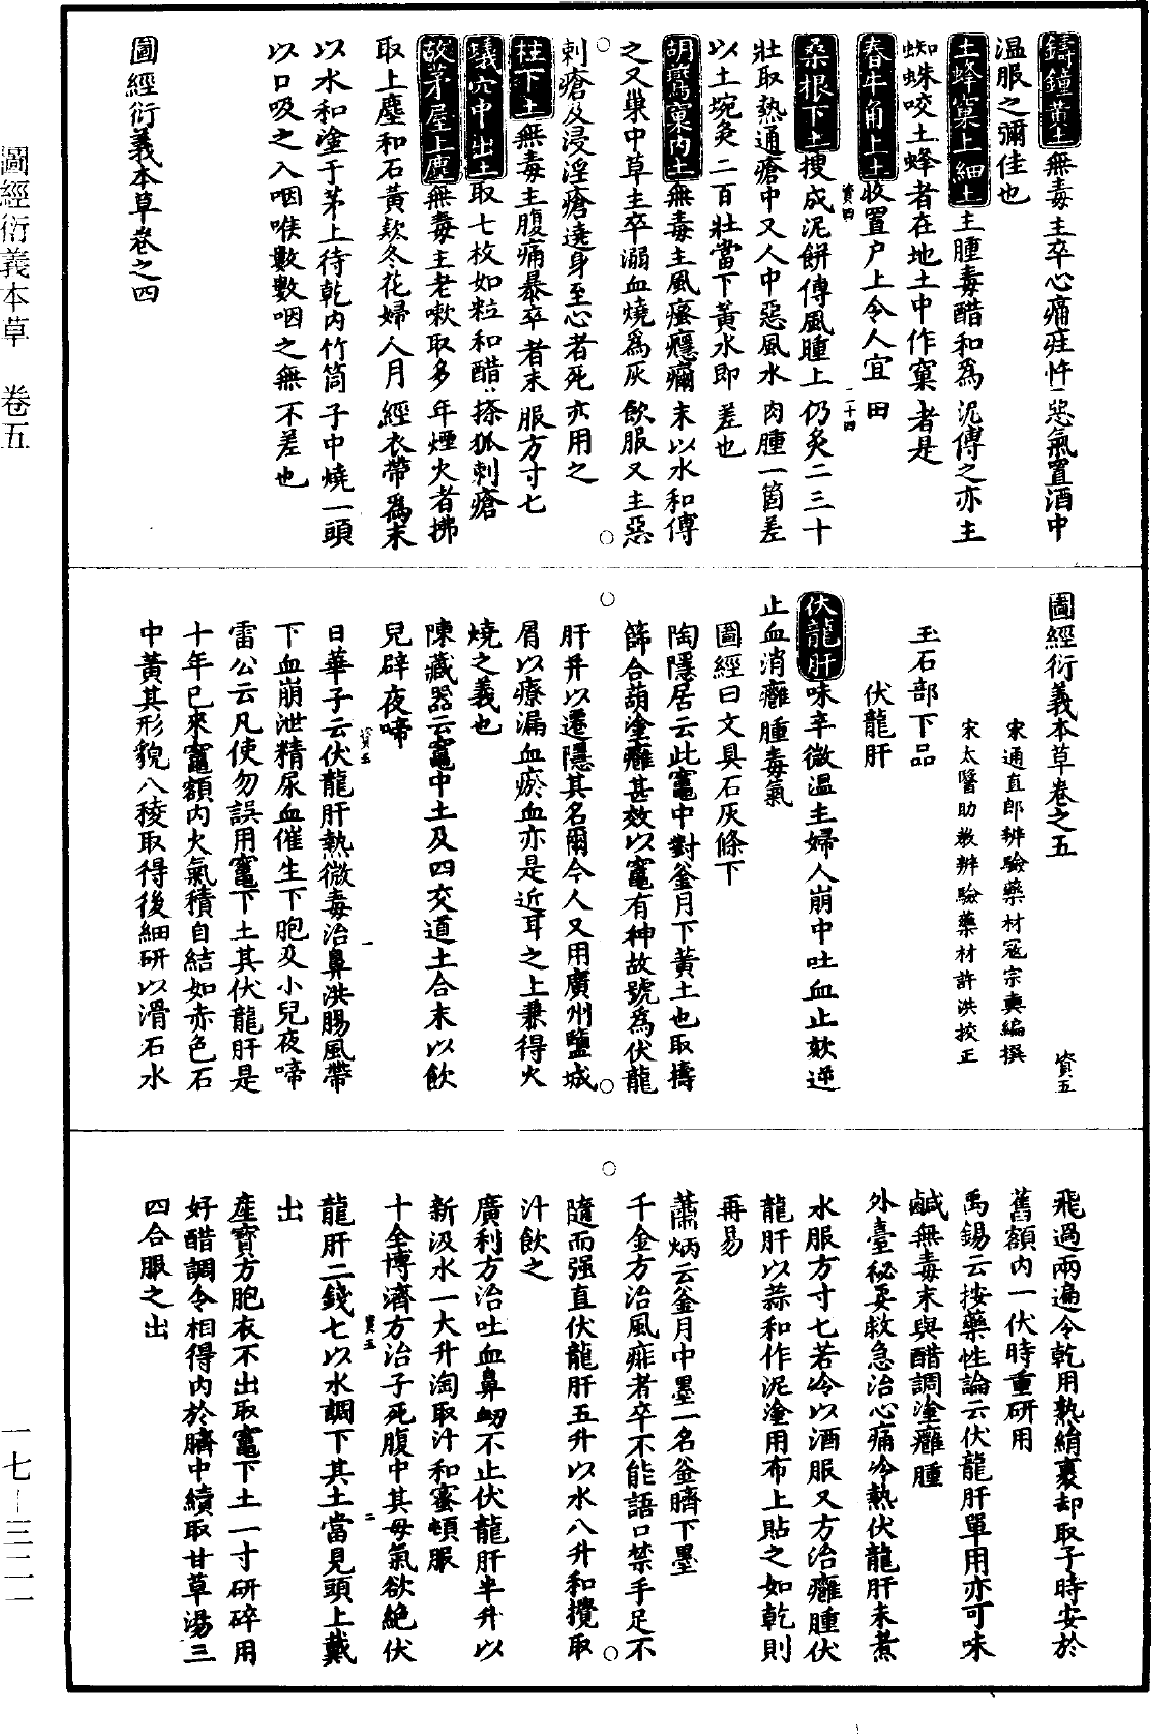 鑄鐘黃土無毒主卒心痛疰忤惡氣置酒中
温服之彌佳也
土蜂窠上細土主腫毒醋和為泥傅之亦主
蜘蛛咬土蜂者在地土中作窠者是
春牛角上土收置户上令人宜田
資四
二十四
桑根下土搜成泥餅傅風腫上仍灸二三十
壯取熱通瘡中又人中惡風水肉腫一箇差
以土埦灸二百壯當下黃水即差也
胡鷰窠內土無毒主風瘙癮㿔末以水和傅
之又巢中草主卒溺血燒為灰飲服又主惡
刺瘡及浸淫瘡遶身至心者死亦用之
柱下土無毒主腹痛暴卒者末服方寸七
蟻穴中出土取七枚如粒和醋搽狐刺瘡
故茅屋上塵無毒主老嗽取多年煙火者拂
取上塵和石黃欵冬花婦人月經衣帶為末
以水和塗于茅上待乾內竹筒子中燒一頭
以口吸之入咽喉數數咽之無不差也
圖經衍義本草卷之四
圖經衍義本草卷之五
資五
宋通直郎辨驗藥材寇宗奭編撰
宋太醫助教辨驗藥材許洪挍正
玉石部下品
伏龍肝
伏龍肝味辛微温主婦人崩中吐血止欬逆
止血消癰腫毒氣
圖經曰文具石灰條下
陶隱居云此竈中對釜月下黃土也取擣
篩合葫塗癰甚效以竈有神故號為伏龍
肝并以遷隱其名爾今人又用廣州鹽城
屑以療漏血瘀血亦是近耳之上兼得火
燒之義也
陳藏器云竈中土及四交道土合末以飲
兒辟夜啼
資五
一
日華子云伏龍肝熱微毒治鼻洪腸風帶
下血崩泄精尿血催生下胞及小兒夜啼
雷公云凡使勿誤用竈下土其伏龍肝是
十年已來竈額內火氣積自結如赤色石
中黃其形貌八稜取得後細研以滑石水
飛過兩遍令乾用熟絹裹却取子時安於
舊額內一伏時重研用
禹錫云按藥性論云伏龍肝單用亦可味
鹹無毒末與醋調塗癰腫
外臺秘要救急治心痛冷熱伏龍肝末煮
水服方寸七若冷以酒服又方治癰腫伏
龍肝以蒜和作泥塗用布上貼之如乾則
再易
蕭炳云釜月中墨一名釜臍下墨
千金方治風痱者卒不能語口禁手足不
隨而强直伏龍肝五升以水八升和攪取
汁飲之
廣利方治吐血鼻衂不止伏龍肝半升以
新汲水一大升淘取汁和蜜頓服
十全博濟方治子死腹中其母氣欲絶伏
資五
二
龍肝二錢七以水調下其土當見頭上戴
出
産寶方胞衣不出取竈下土一寸研碎用
好醋調令相得內於臍中續取甘草湯三
四合服之出
圖經衍義本草 卷五
一七—三二一